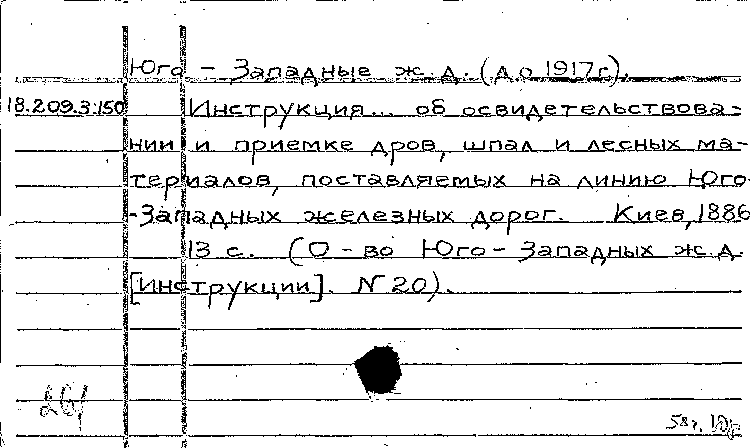 Юго - Западные ж. д. (до 1917г).
18.209.3.150 Инструкция... об освидетельствова-
нии и приемке дров, шпал и лесных ма-
териалов, поставляемых на линию Юго
-Западных железных дорог. Киев, 1886
13 с. (О-во Юго-Западных ж.д.
[Инструкции]. N 20).
261
58г.